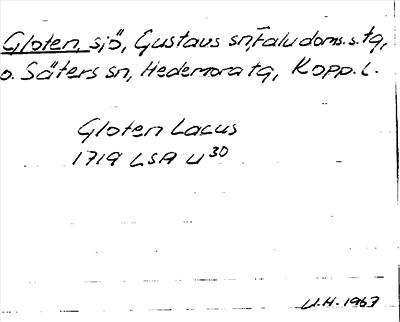 Gloten, sjö, Gustavs sn, Falu doms. s. tg,
o. Säters sn, Hedemora tg, Kopp. l.
Gloten Lacus
1719 LSA U 30
U.H. 1963